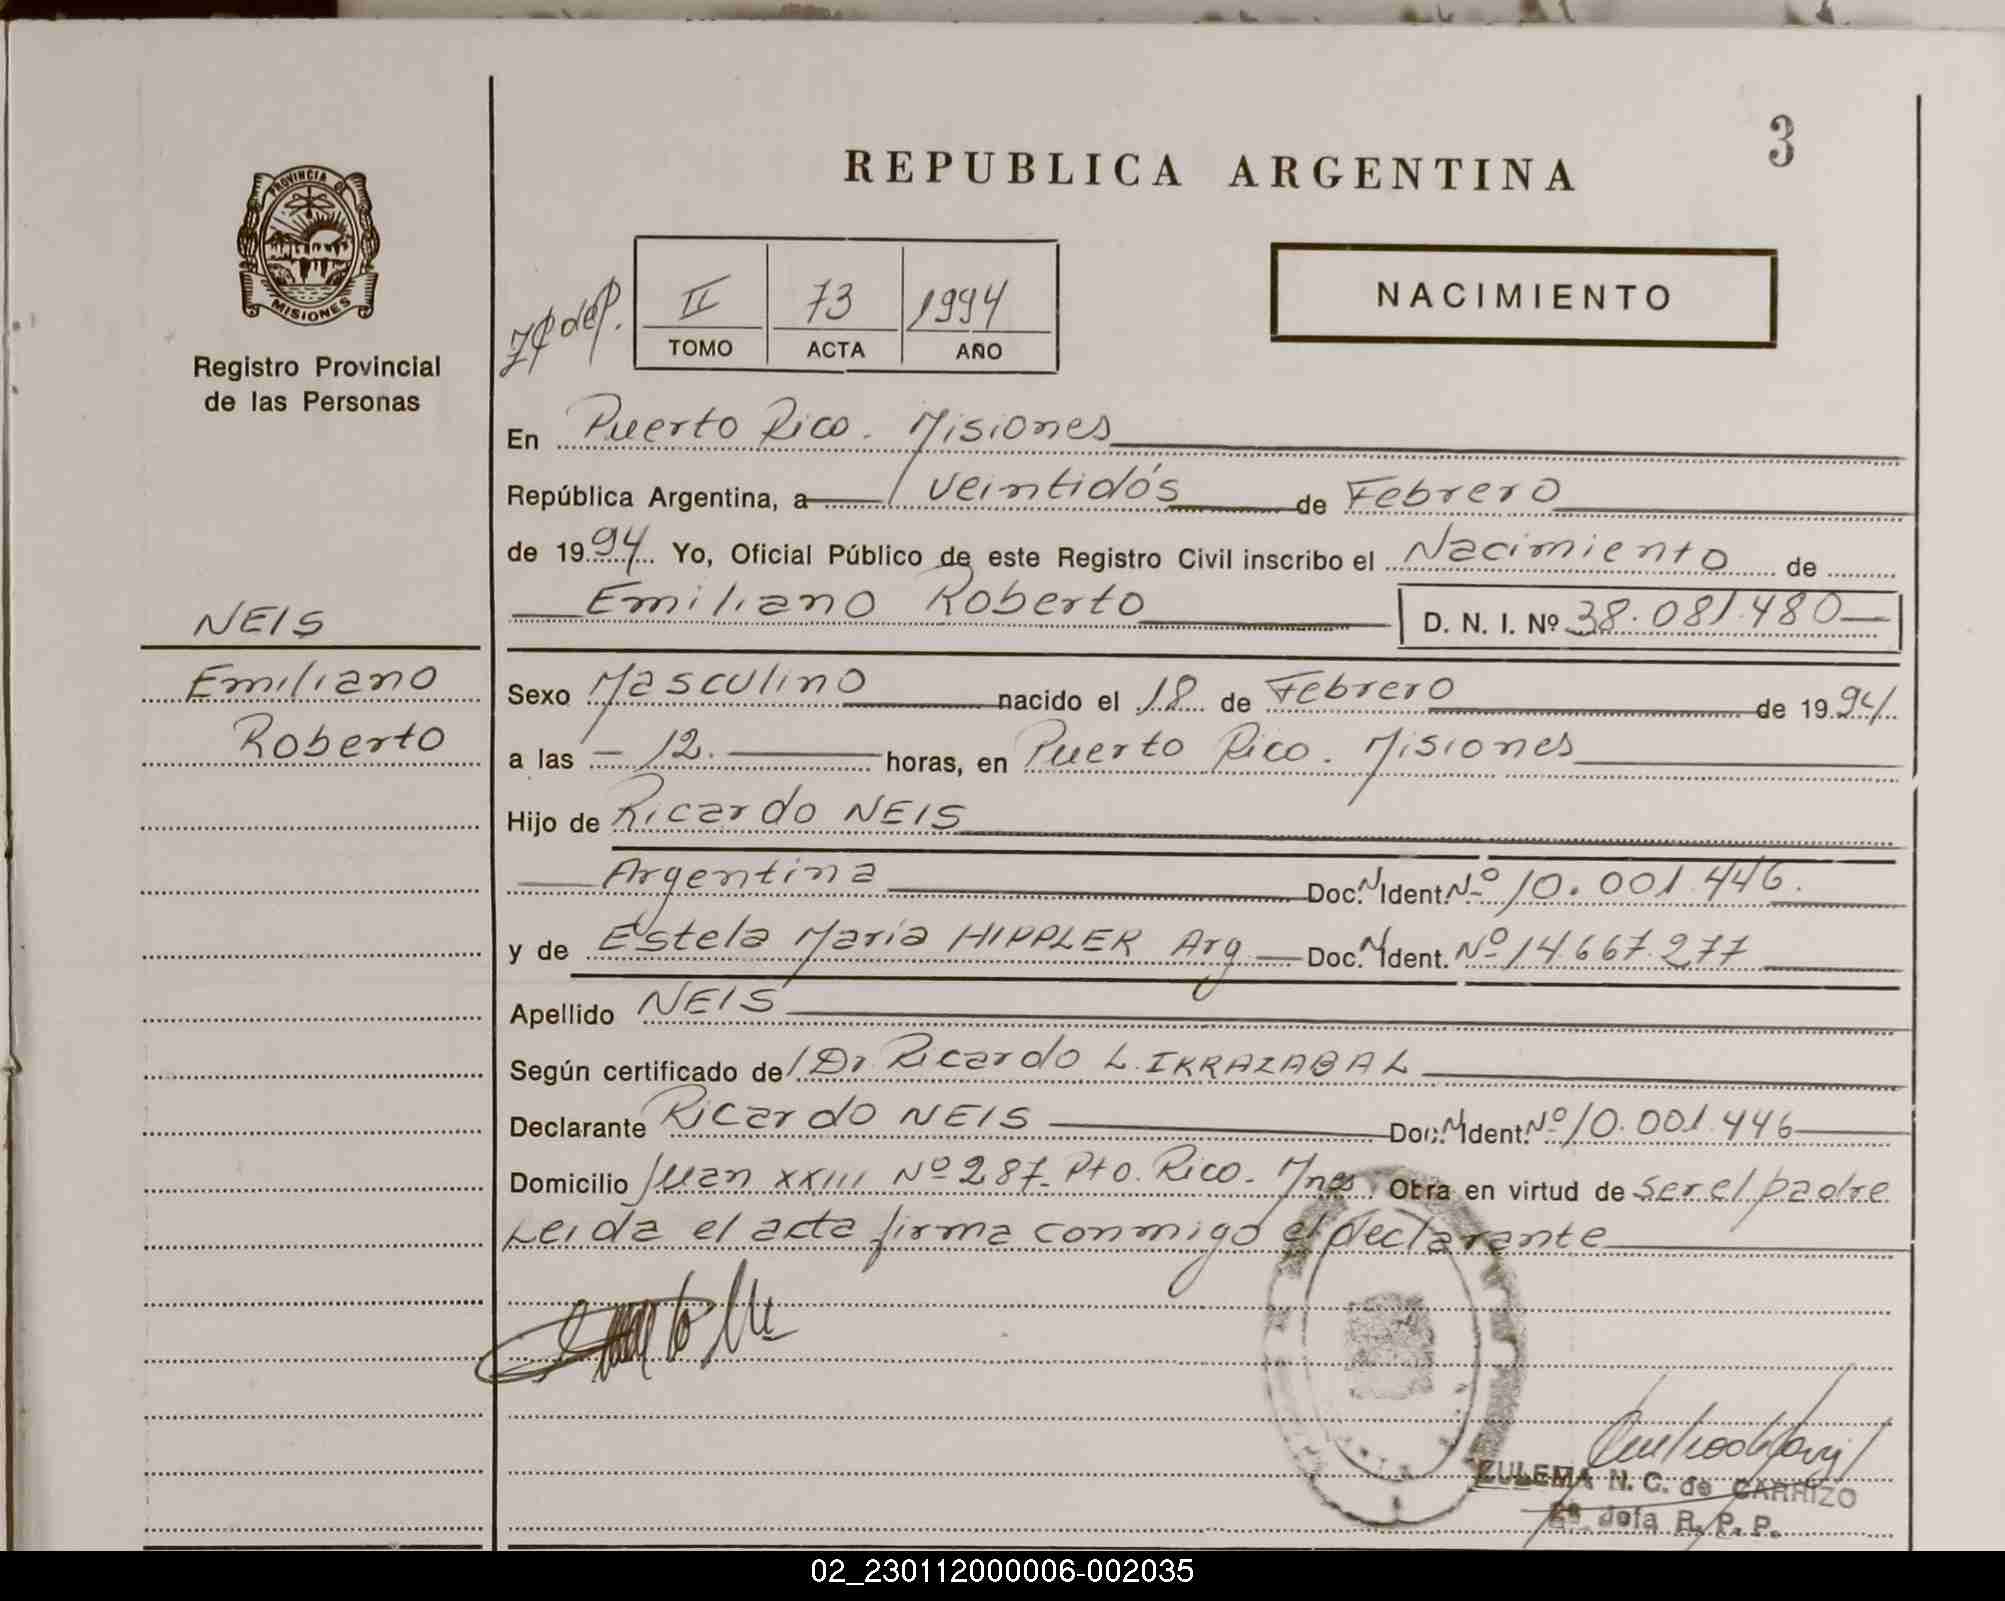 3
REPUBLICA ARGENTINA
PROVINCIA DE
MISIONES
Registro Provincial
de las Personas
II 73 1994
TOMO ACTA AÑO
NACIMIENTO
En Puerto Rico. Misiones
República Argentina, a veintidós de Febrero
de 1994 Yo, Oficial Público de este Registro Civil inscribo el Nacimiento de
Emiliano Roberto D. N. I. Nº 38.081.480
NEIS
Emiliano
Roberto
Sexo Masculino nacido el 18 de Febrero de 1994
a las 12. horas, en Puerto Rico. Misiones
Hijo de Ricardo NEIS
Argentina Doc. N. Ident. Nº 10.001.446.
y de Estela María HIPPLER Arg Doc. N. Ident. Nº 14.667.277
Apellido NEIS
Según certificado de Dr. Ricardo L. IRRAZABAL
Declarante Ricardo NEIS Doc. N. Ident. Nº 10.001.446
Domicilio Juan XXIII Nº 287. Pto. Rico. Mnes Obra en virtud de ser el padre
Leida el acta firma conmigo el declarante
ZULEMA N. C. de CARRIZO
2ª Jefa R. P. P.
02_230112000006-002035